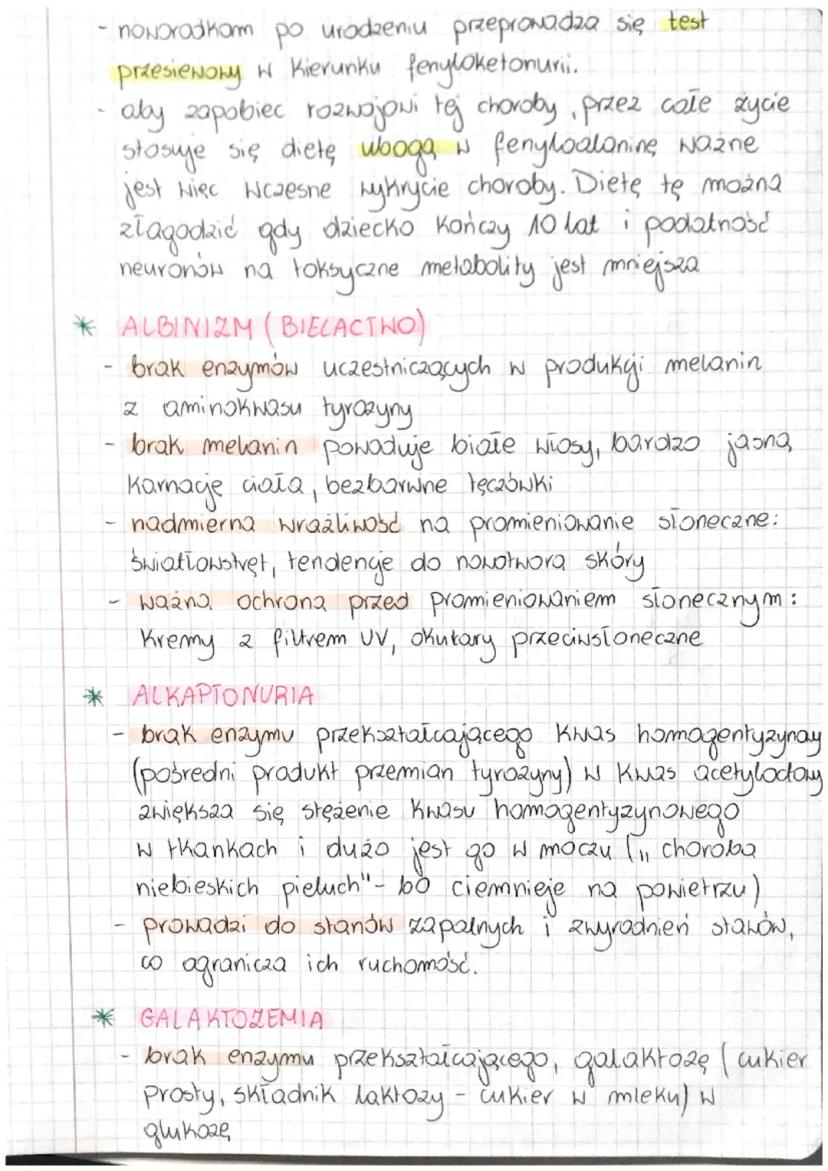 - noworodkom po urodzeniu przeprowadza się test
przesiewowy w kierunku fenyloketonurii.
- aby zapobiec rozwojowi tej choroby, przez całe życie
stosuje się dietę ubogą w fenyloalaninę ważne
jest więc wczesne wykrycie choroby. Dietę tę można
złagodzić gdy dziecko kończy 10 lat i podatność
neuronów na toksyczne metabolity jest mniejsza
* ALBINIZM (BIELACTWO)
- brak enzymów uczestniczących w produkcji melanin
z aminokwasu tyrozyny
- brak melanin powoduje białe włosy, bardzo jasną
karnację ciała, bezbarwne tęczówki
- nadmierna wrażliwość na promieniowanie słoneczne:
światłowstręt, tendencje do nowotwora skóry
- ważna ochrona przed promieniowaniem słonecznym:
kremy z filtrem UV, okulary przeciwsłoneczne
* ALKAPTONURIA
- brak enzymu przekształcającego kwas homogentyzynowy
(pośredni produkt przemian tyrozyny) w kwas acetylooctowy
zwiększa się stężenie kwasu homogentyzynowego
w tkankach i dużo jest go w moczu („choroba
niebieskich pieluch" - bo ciemnieje na powietrzu)
- prowadzi do stanów zapalnych i zwyrodnień stawów,
co ogranicza ich ruchomość.
* GALAKTOZEMIA
- brak enzymu przekształcającego, galaktozę (cukier
prosty, składnik laktozy - cukier w mleku) w
glukozę